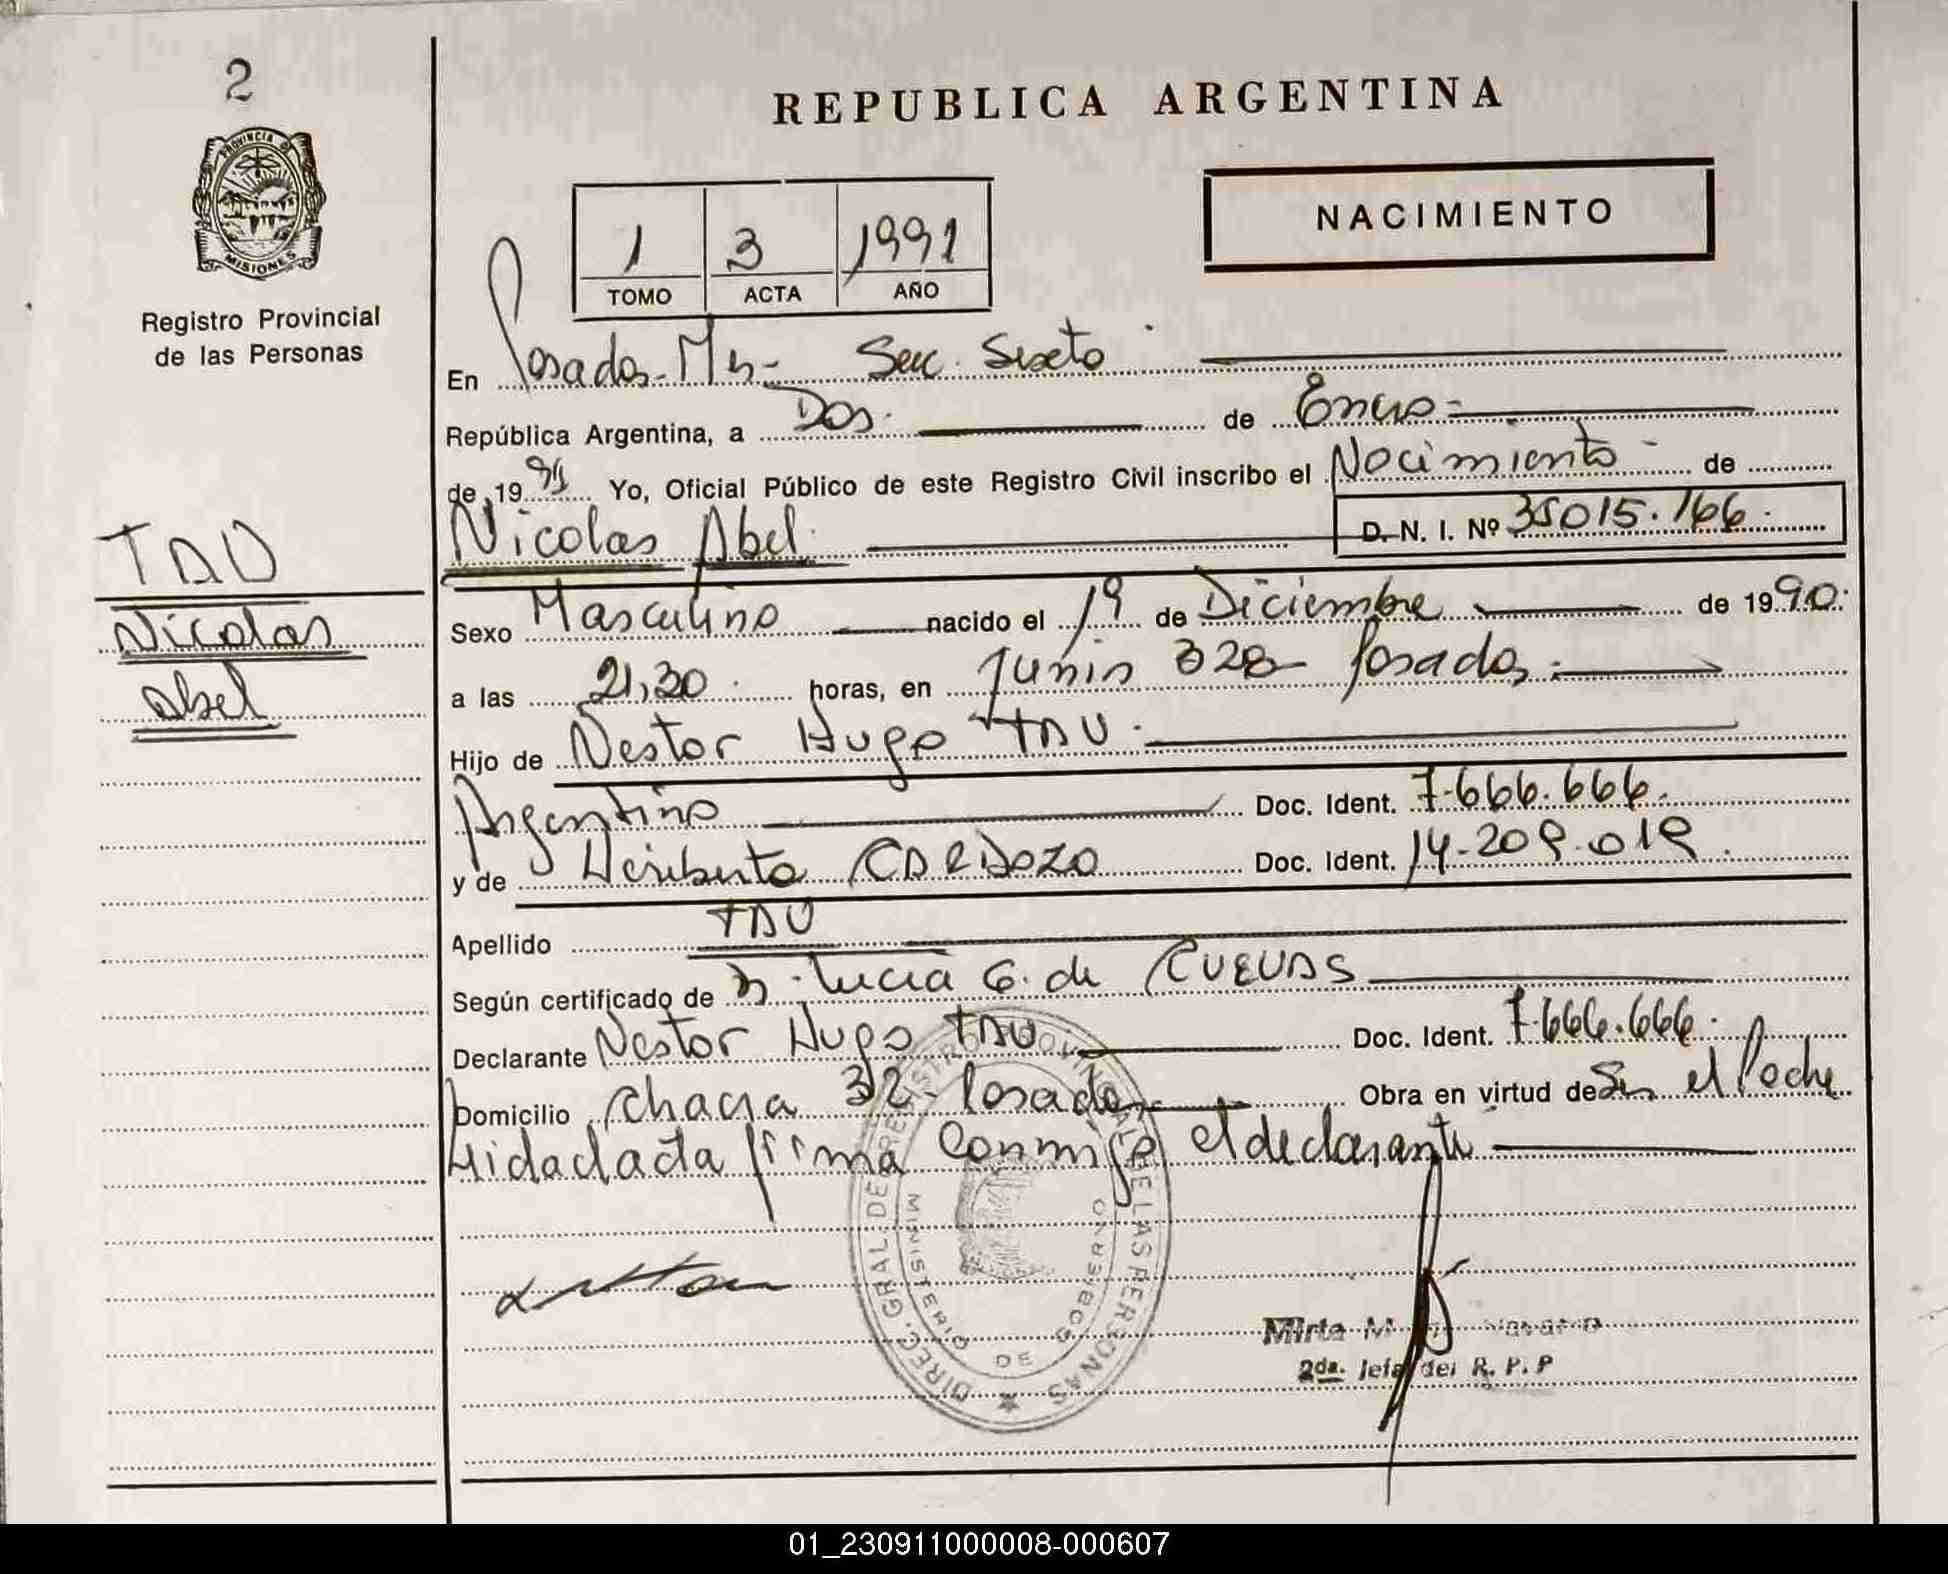 2
PROVINCIA DE
MISIONES
Registro Provincial
de las Personas
TAU
Nicolas
Abel
REPUBLICA ARGENTINA
NACIMIENTO
1 3 1991
TOMO ACTA AÑO
En Posadas - Mis - Secc. Sexta
República Argentina, a Dos de Enero
de 1991 Yo, Oficial Público de este Registro Civil inscribo el Nacimiento de
Nicolas Abel D. N. I. Nº 35015.166
Sexo Masculino nacido el 19 de Diciembre de 1990
a las 21,30 horas, en Junin 328 Posadas
Hijo de Nestor Hugo TAU
Argentino Doc. Ident. 7.666.666
y de Heriberta CARDOZO Doc. Ident. 14.209.019
Apellido TAU
Según certificado de Lucia G. de CUEVAS
Declarante Nestor Hugo TAU Doc. Ident. 7.666.666
Domicilio Chacra 32 - Posadas Obra en virtud de Ser el Padre
Leida el acta firma conmigo el declarante
DIREC. GRAL. DE REGISTRO PROVINCIAL DE LAS PERSONAS
MINISTERIO DE GOBIERNO
Mirta
2da. Jefa del R. P. P
01_230911000008-000607